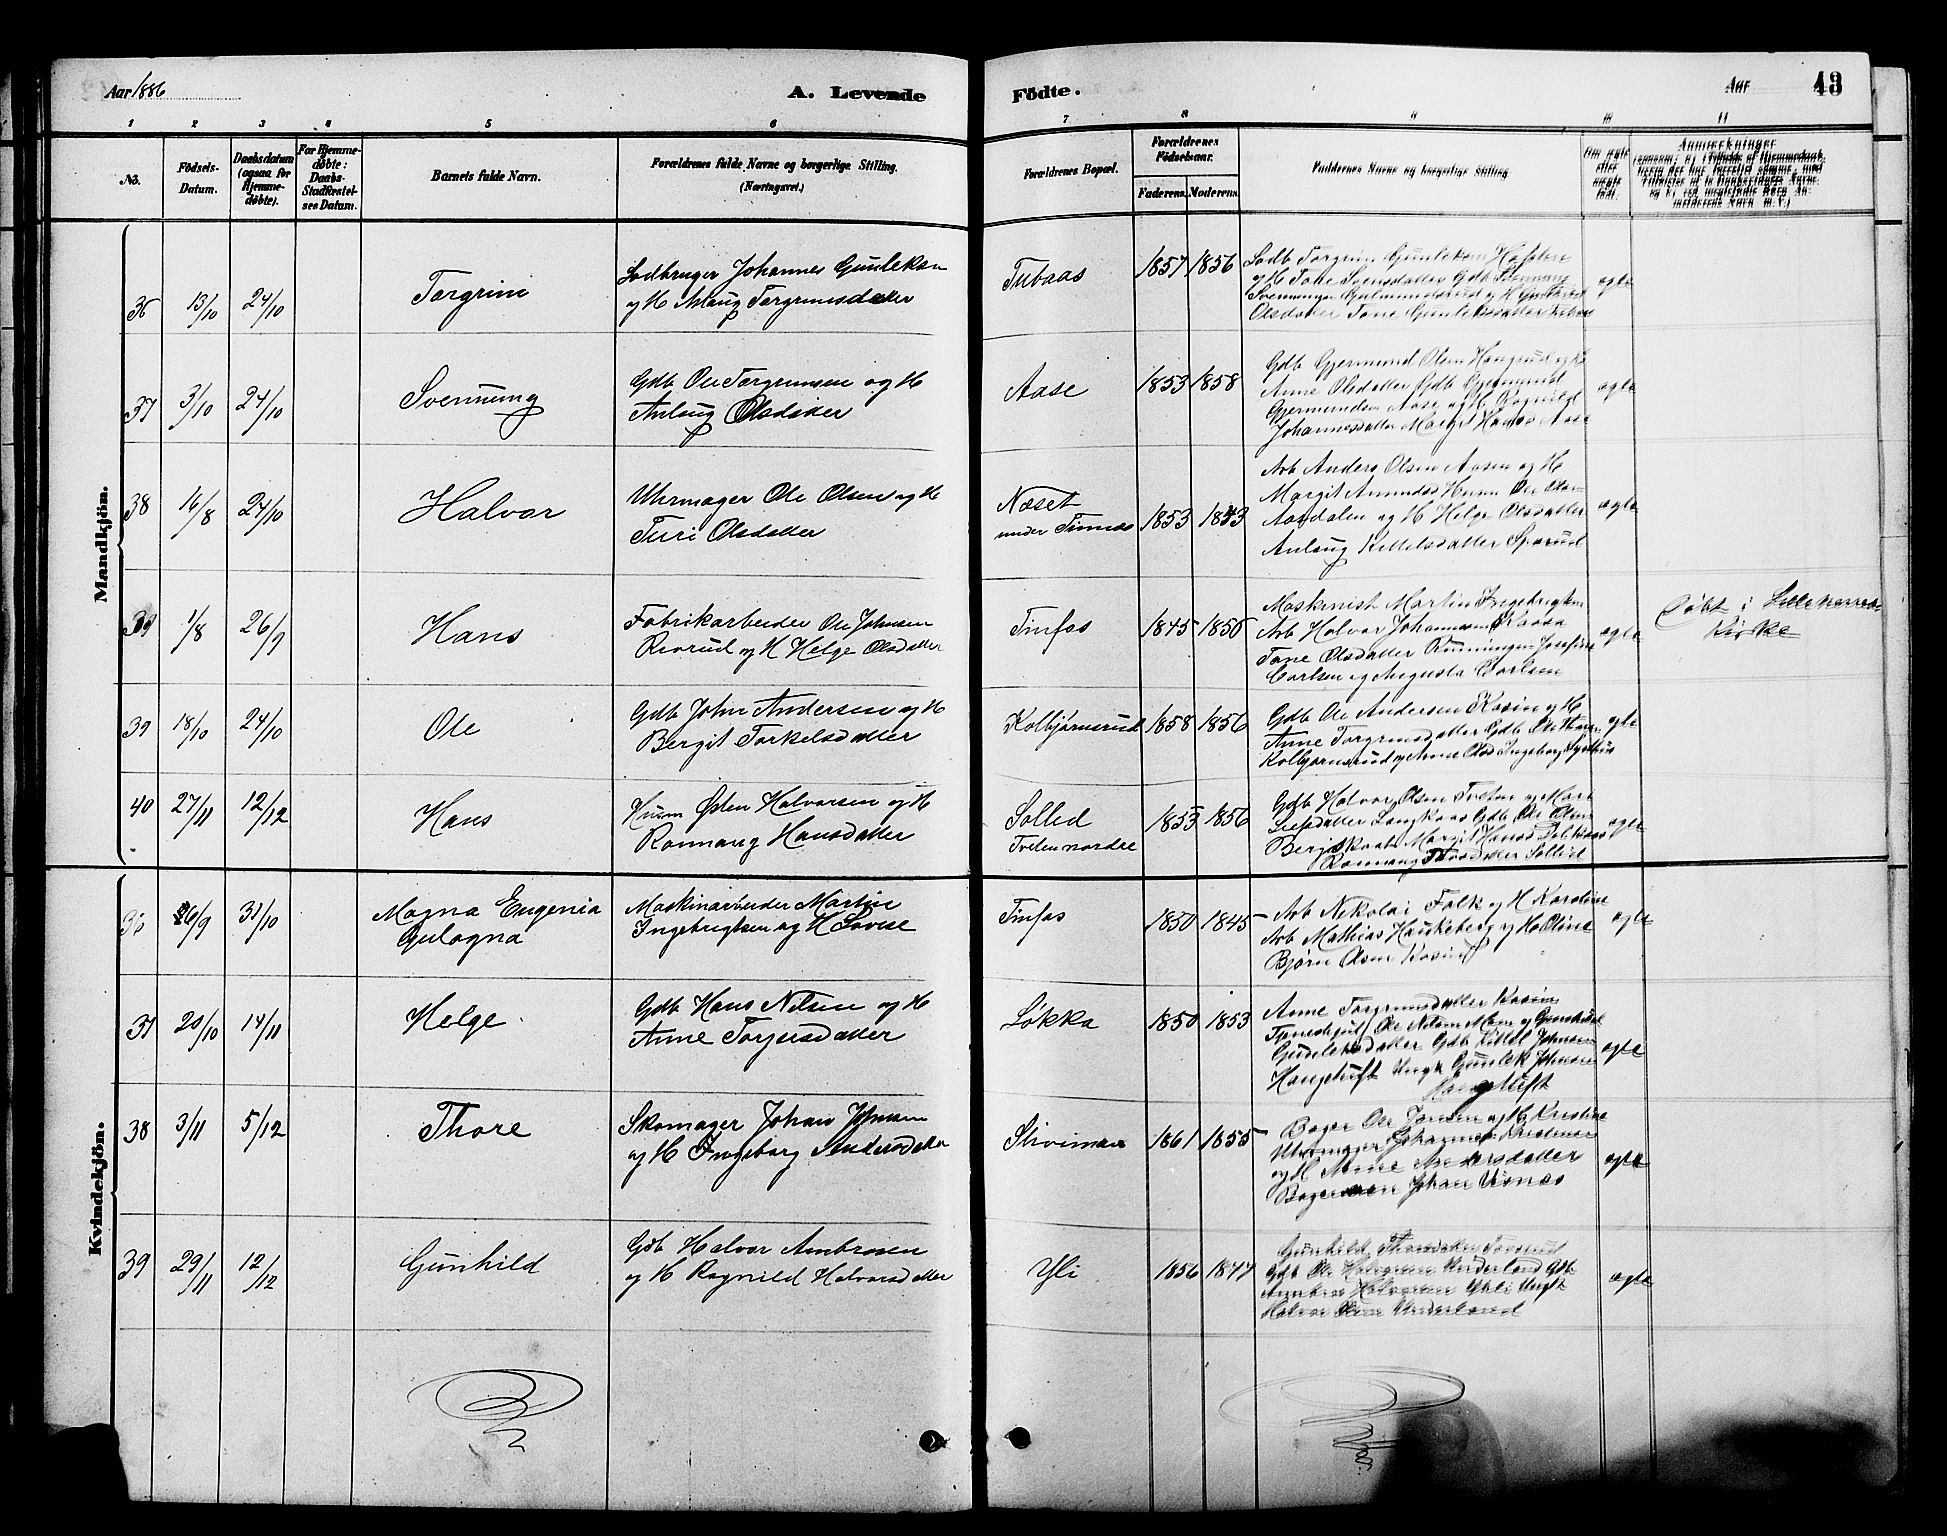 Aar 1886
A. Levende
Födte.
Aar
43
1 2 3 4 5 6 7 8 9 10 11
No.
Födsels-
Datum.
Daabsdatum
(ogsaa for
Hjemme-
døbte).
For Hjemme-
døbte:
Daabs-
Stadfæstel-
ses Datum.
Barnets fulde Navn.
Forældrenes fulde Navne og borgerlige Stilling.
(Næringsvei.)
Forældrenes Bopæl.
Forældrenes
Födselsaar.
Faderens.
Moderens.
Faddernes Navne og borgerlige Stilling
Om ægte
eller
uægte
født.
Anmærkninger
Mandkjön.
36 13/10 24/10 Torgrim
Lodbruger Johannes Gunleksen
og H Aslaug Torgrimsdatter
Tubaas 1857 1856
Torgrim Gunleksen
og H Tone Svensdatter Gdb
Olsdatter Tone Gunleksdatter
ægte
37 3/10 24/10 Svennung
Gdb Ole Torgrimsen og H
Anlaug Olsdatter
Aase 1853 1858
Gdb Gjermund Olsen Haugrud og H
Anne Olsdatter Gdb Gjermund
Gjermundsen Aase og H Ragnild
Johannesdatter Margit Hansd Aase
ægte
38 16/8 24/10 Halvor
Uhrmager Ole Olsen og H
Turi Olsdatter
Næset
under Tinnes 1853 1853
Arb Anders Olsen Aasen og H
Margit Amundsd Husm Ole Olsen
Aardalen og H Helge Olsdatter
Anlaug Kittelsdatter Sporud
ægte
39 1/8 26/9 Hans
Fabrikarbeider Ole Johnsen
Rivrud og H Helge Olsdatter
Tinfos 1845 1850
Maskinist Martin Ingebrigtsen
Arb Halvor Johannesen Kaasa
Tone Olsdatter Runningen Josefine
Carlsen og Augusta Carlsen
ægte
Døbt i Lilleherred
Kirke
39 18/10 24/10 Ole
Gdb John Andersen og H
Bergit Torkelsdatter
Kolbjørnsrud 1858 1856
Gdb Ole Andersen Kosin og H
Anne Torgrimsdatter Gdb Ole
Kolbjørnsrud og Anne Olsd Ingeborg
ægte
40 27/11 12/12 Hans
Husm Østen Halvorsen og H
Ronnaug Hansdatter
Solled
Tveten nordre 1853 1856
Gdb Halvor Olsen Tveten og Mari
Leifsdatter Langkaas Gdb Ole Olsen
Margit Hansd
Ronnaug Sollid
ægte
Kvindekjön.
36 26/9 31/10 Magna Eugenia
Gulogna
Maskinarbeider Martin
Ingebrigtsen og H Lovise
Tinfos 1850 1845
Arb Nikolai Falk og H Karoline
Arb Mathias Haukeberg og H Oline
Bjørn Olsen Kosin
ægte
37 20/10 14/11 Helge
Gdb Hans Nilsen og H
Anne Torjusdatter
Løkka 1850 1853
Anne Torgrimsdatter Kosin
Ole Nilsen Moen og Gunhild
Gunleksdatter Gdb Kittel Johnsen
Haugetuft Ungk Gunlek Johnsen
Haugetuft
ægte
38 3/11 5/12 Thore
Skomager Johan Johnsen
og H Ingeborg Andersdatter
1861 1855
Bager Ole Jonsen og H Kristine
Uhrmager Johannes Kristensen
og H Anne Andersdatter
Johan Visnæs
ægte
39 29/11 12/12 Gunhild
Gdb Halvor Ambrosen
og H Ragnild Halvorsdatter
Yli 1856 1847
Gunhild Thorsdatter
Gdb Ole Halvorsen Underland Gdb
Ambros Halvorsen Yli Ungk
Halvor Olsen Underland
ægte